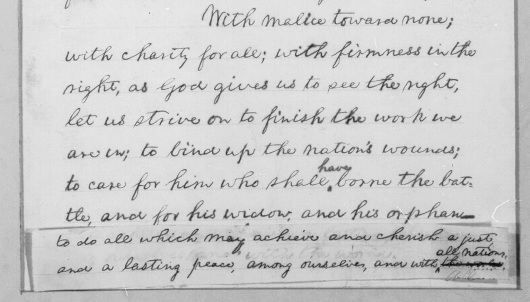 With malice toward none;
with charity for all; with firmness in the
right, as God gives us to see the right,
let us strive on to finish the work we
are in; to bind up the nation's wounds;
to care for him who shall have borne the bat-
tle, and for his widow, and his orphan
to do all which may achieve and cherish a just
and a lasting peace, among ourselves, and with all nations.